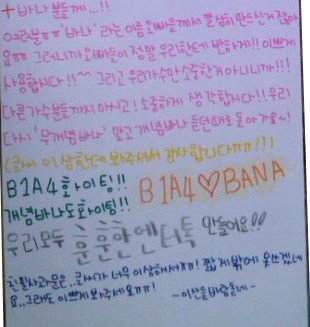 + 바나분들께...!!
여러분ㅠㅠ '바나' 라는 이름 오빠들께서 열심히 만드신거 잖아
요ㅠㅠ 그러니까 오빠들이 정말 우리한테 반하게!! 이쁘게
사용합시다!!^^ 그리고 우리가수만 소중한거 아니니까!!!
다른가수분들까지 아시고! 소중하게 생각합시다!! 우리
다시 '무개념바나' 말고 개념바나 듣던때로 돌아가요~!
(글씨 이상한데 봐주셔서 감사합니다ㅠㅠ!!!)
B1A4화이팅!!
B1A4♡BANA
개념바나도화이팅!!
우리모두 훈훈한엔터톡 만들어요!!
글씨가너무이상해서ㅠㅠ! 짧게밖에 못쓰겠네
요..그래도 이쁘게 봐주세요ㅠㅠ!